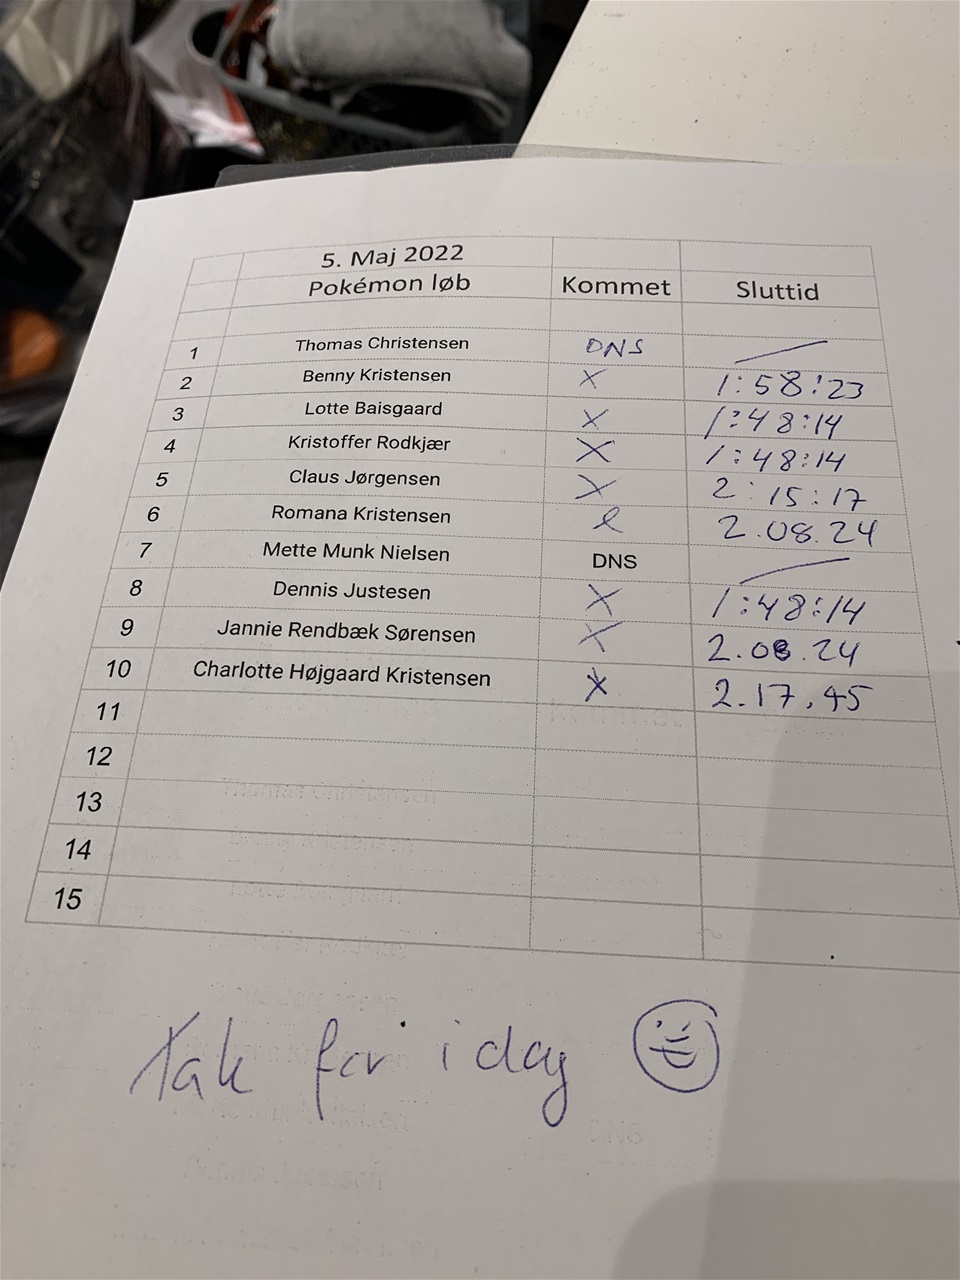 5. Maj 2022
Pokémon løb Kommet Sluttid
1 Thomas Christensen DNS
2 Benny Kristensen X 1:58:23
3 Lotte Baisgaard X 1:48:14
4 Kristoffer Rodkjær X 1:48:14
5 Claus Jørgensen X 2:15:17
6 Romana Kristensen X 2.08.24
7 Mette Munk Nielsen DNS
8 Dennis Justesen X 1:48:14
9 Jannie Rendbæk Sørensen X 2.08.24
10 Charlotte Højgaard Kristensen X 2.17.45
11
12
13
14
15
Tak for i dag